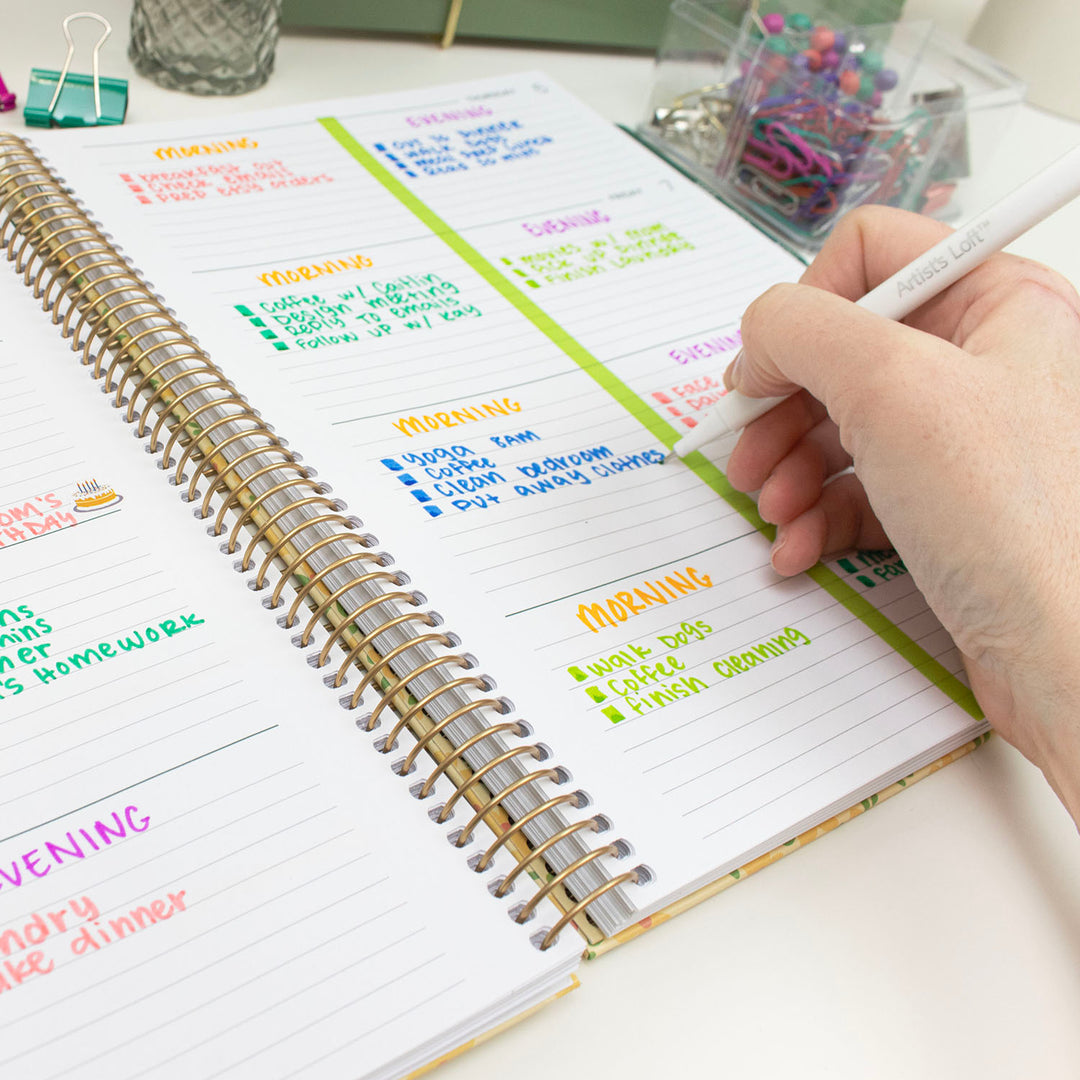 OM'S
THDAY
ns
mins
ner
's HOMEWORK
VENING
ndry
ake dinner
THURSDAY 6
MORNING
breakfast out
CHeck emails
PREP easy orders
EVENING
out to dinner
WALK DOGS
Read 20 mins
FRIDAY 7
MORNING
Coffee w/ Caitlin
Design meeting
Reply to emails
Follow up w/ Kay
EVENING
movies w/ mom
Pick up Dinner
Finish Laundry
MORNING
yoga 8AM
Coffee
clean bedroom
put away clothes
EVENING
Face
MORNING
walk DOGS
Coffee
finish cleaning
Artist's Loft™